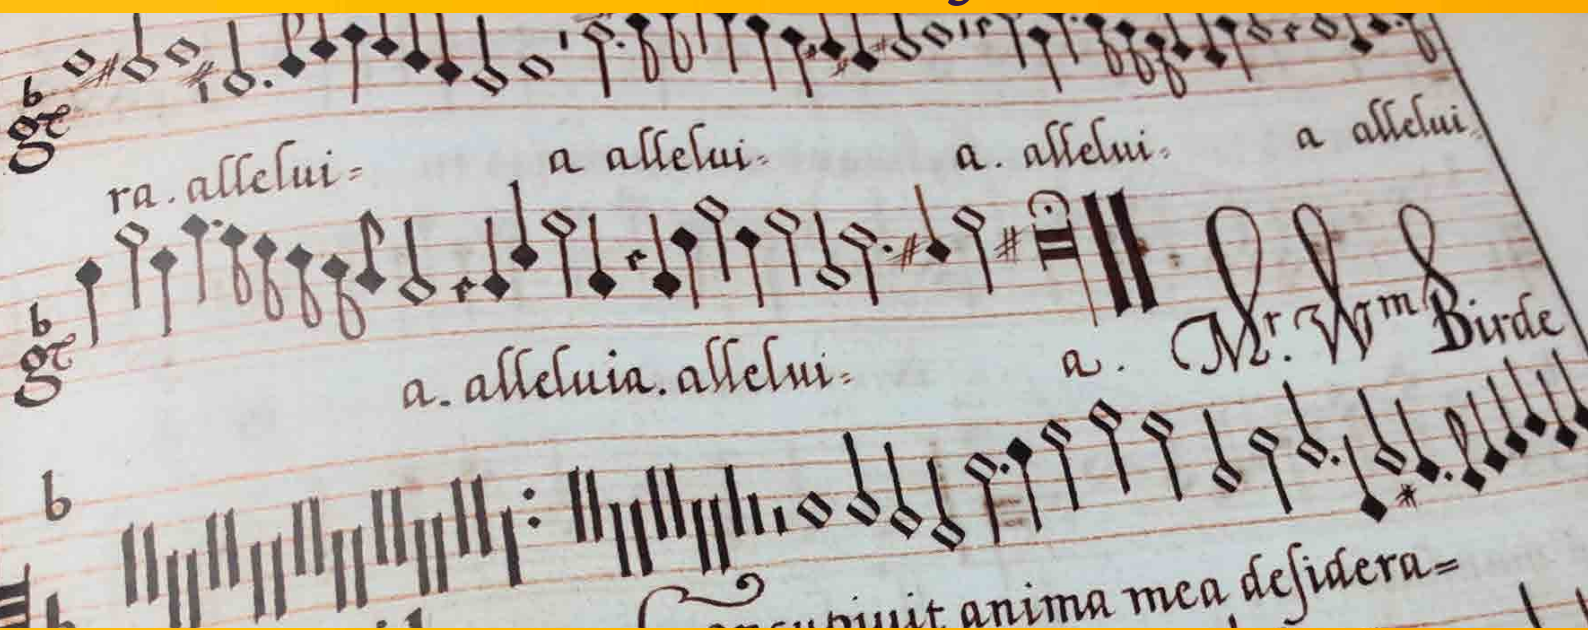 ra. allelui= a allelui= a. allelui= a allelui
a. alleluia. allelui= a. Mr. Wm Birde
anima mea desidera=